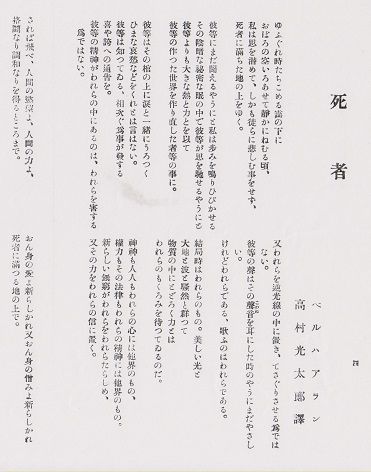 死者
ベルハアラン
高村光太郎譯
ゆふぐれ時たちこめる雲の下に
おぼろの姿いろあせて靜かにねむる頃、
私は思を潜めて、しかも徒らに悲しむ事をせず、
死者に滿ちた地の上をゆく。
彼等にまだ聞えるやうにと私は歩みを鳴りひびかせる
その陰暗な祕密な眠の中で彼等が思を馳せるやうにと
彼等よりも大きな熱と力とを以て
彼等の作つた世界を作り直した者等の事に。
彼等はその棺の上に涙と一緒にうろつく
ひまな哀愁などをくれとは言はない。
彼等は知つてゐる、相次ぐ爲事が發する
喜や誇への通告を。
彼等の精神がわれらの中にあるのは、われらを害する
爲ではない。
されば飛べ、人間の慾望よ、人間の力よ、
格鬪なり調和なりを得るところまで。
又われらを逆光線の中に置き、てさぐりさせる爲では
ない。
彼等の聲はその聲音を耳にした時のやうにまだやさし
い。
けれどわれらである、歌ふのはわれらである。
結局時はわれらのもの。美しい光と
大地と波と騷然と群つて
物質の中にとどろく力とは
われらのもくろみを待つてゐるのだ。
神神も人人もわれらの心には他界のもの、
權力もその法律もわれらの精神には他界のもの。
新らしい無窮がわれらをわれらたらしめ、
又その力をわれらの信に置く。
おん身の愛よ新らしかれ又おん身の憎みよ新らしかれ
死者に滿つる地の上で。